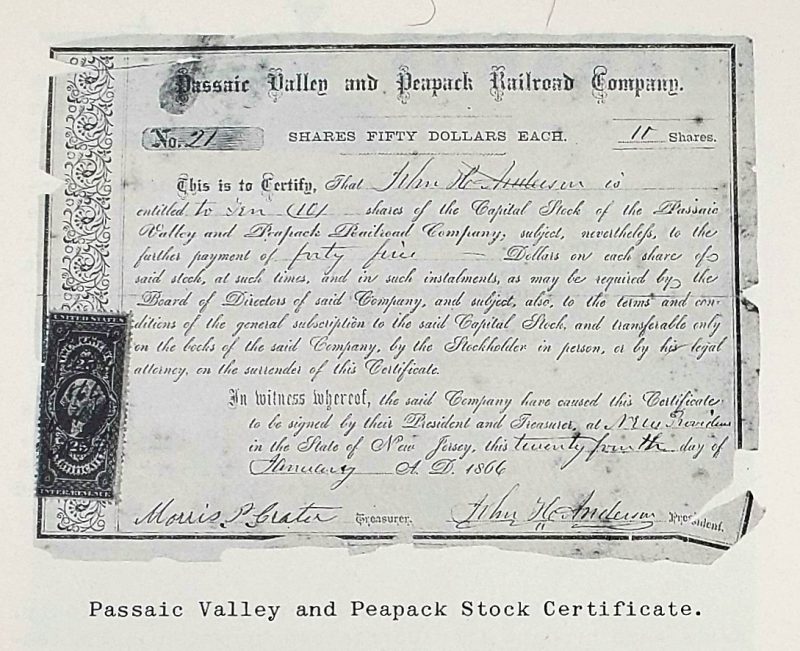 Passaic Valley and Peapack Railroad Company.
No. 21 SHARES FIFTY DOLLARS EACH. 10 Shares.
This is to Certify, That John H. Anderson is
entitled to Ten (10) shares of the Capital Stock of the Passaic
Valley and Peapack Railroad Company, subject, nevertheless, to the
further payment of forty five Dollars on each share of
said stock, at such times, and in such instalments, as may be required by the
Board of Directors of said Company, and subject, also, to the terms and con-
ditions of the general subscription to the said Capital Stock, and transferable only
on the books of the said Company, by the Stockholder in person, or by his legal
attorney, on the surrender of this Certificate.
In witness whereof, the said Company have caused this Certificate
to be signed by their President and Treasurer, at New Providence
in the State of New Jersey, this twenty fourth day of
January A. D. 1866
UNITED STATES
25 25
CERTIFICATE
INTER. REVENUE
Morris P. Crater Treasurer. John H. Anderson President.
Passaic Valley and Peapack Stock Certificate.